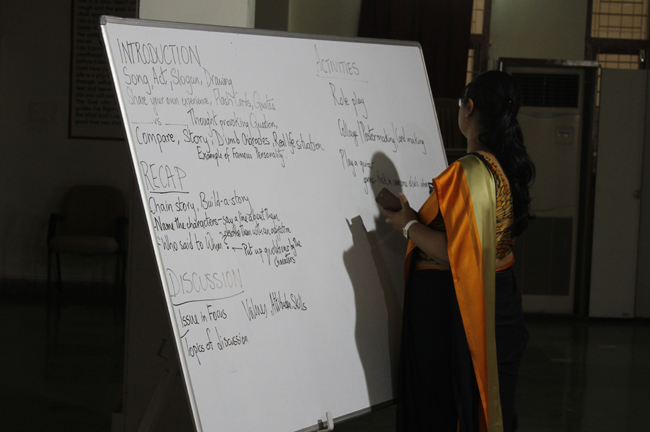 INTRODUCTION
Song, Act, Slogan, Drawing
Share your own experience, Flash Cards, Quotes
Thought provoking Question,
Compare, Story, Dumb Charades, Real life situation
Example of Famous Personality
RECAP
Chain story, Build-a-story
Name the characters - say a line about them
describe them with an adjective
Who said to Whom? ← Put up questions by the
characters
DISCUSSION
Issue in Focus Values, Attitude, Skills
Topics of discussion
ACTIVITIES
Role play
Collage/Poster making/Card making
Play a